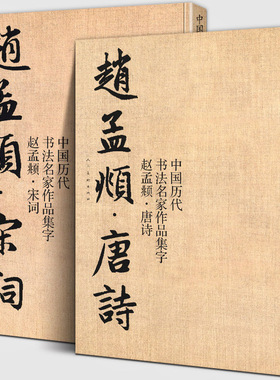 中国历代
书法名家作品集字
赵孟頫·唐诗
趙孟頫·唐詩
中国
中国历代
书法名家作品集字
赵孟頫·宋词
趙孟頫·宋詞